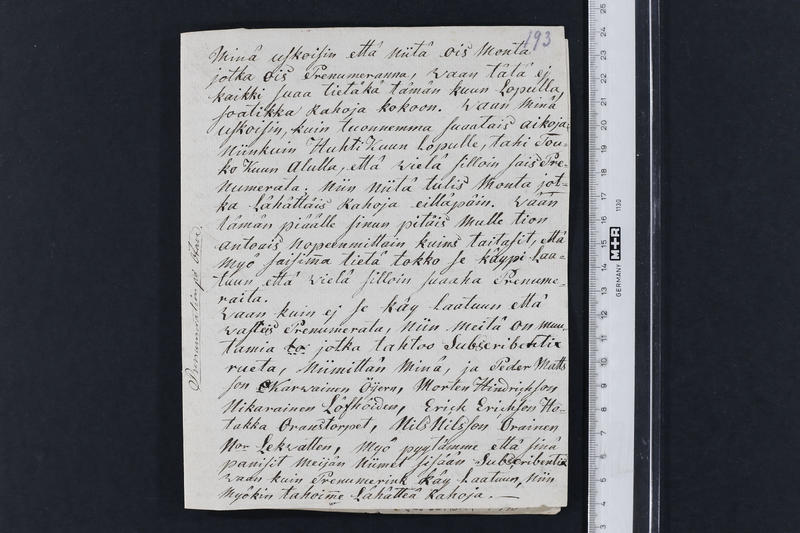 193
Minä uskoisin että niitä ois monta
jotka ois Prenumeranna, waan tätä ej
kaikki saaa tietäkä tämän kuun Lopulla,
soatikka Rahoja kokoon. Waan minä
uskoisin, kuin tuonnemma suaatais aikoja
Niinkuin Huhti Kuun Lopulle, tahi Tou-
ko Kuun alulla, että wielä silloin sais Pre-
numerata. Niin niitä tulis monta jot-
ka Lähättäis Rahoja eilläpäin. Waan
tämän piäälle sinun pitäis Mulle tion
antoais nopeenmittain kuins taitasit, että
myö saisimma tietä tokko se käypi Laa-
tuun että wielä silloin suaaha Prenume-
raita.
Waan kuin ej se käy Laatuun että
wastais Prenumerata, niin meitä on muu-
tamia jotka tahtoo Subscribentie
rueta, Nimittän minä, ja Peder Matts
son Karwainen Öijern, Morten Hindrichson
Hikarainen Löfhöiden, Erick Erichson Ho-
takka Oranstorpet, Nils Nilsson Orainen
Nor Lekvatten, Myö pyytämme että sinä
panisit meijän Niimet sisään Subscribentie
Waan kuin Prenumerink käy Laatuun, niin
Myökin tahoime Lähättää Rahoja. —
GERMANY M+R 1130
3 4 5 6 7 8 9 10 11 12 13 14 15 16 17 18 19 20 21 22 23 24 25